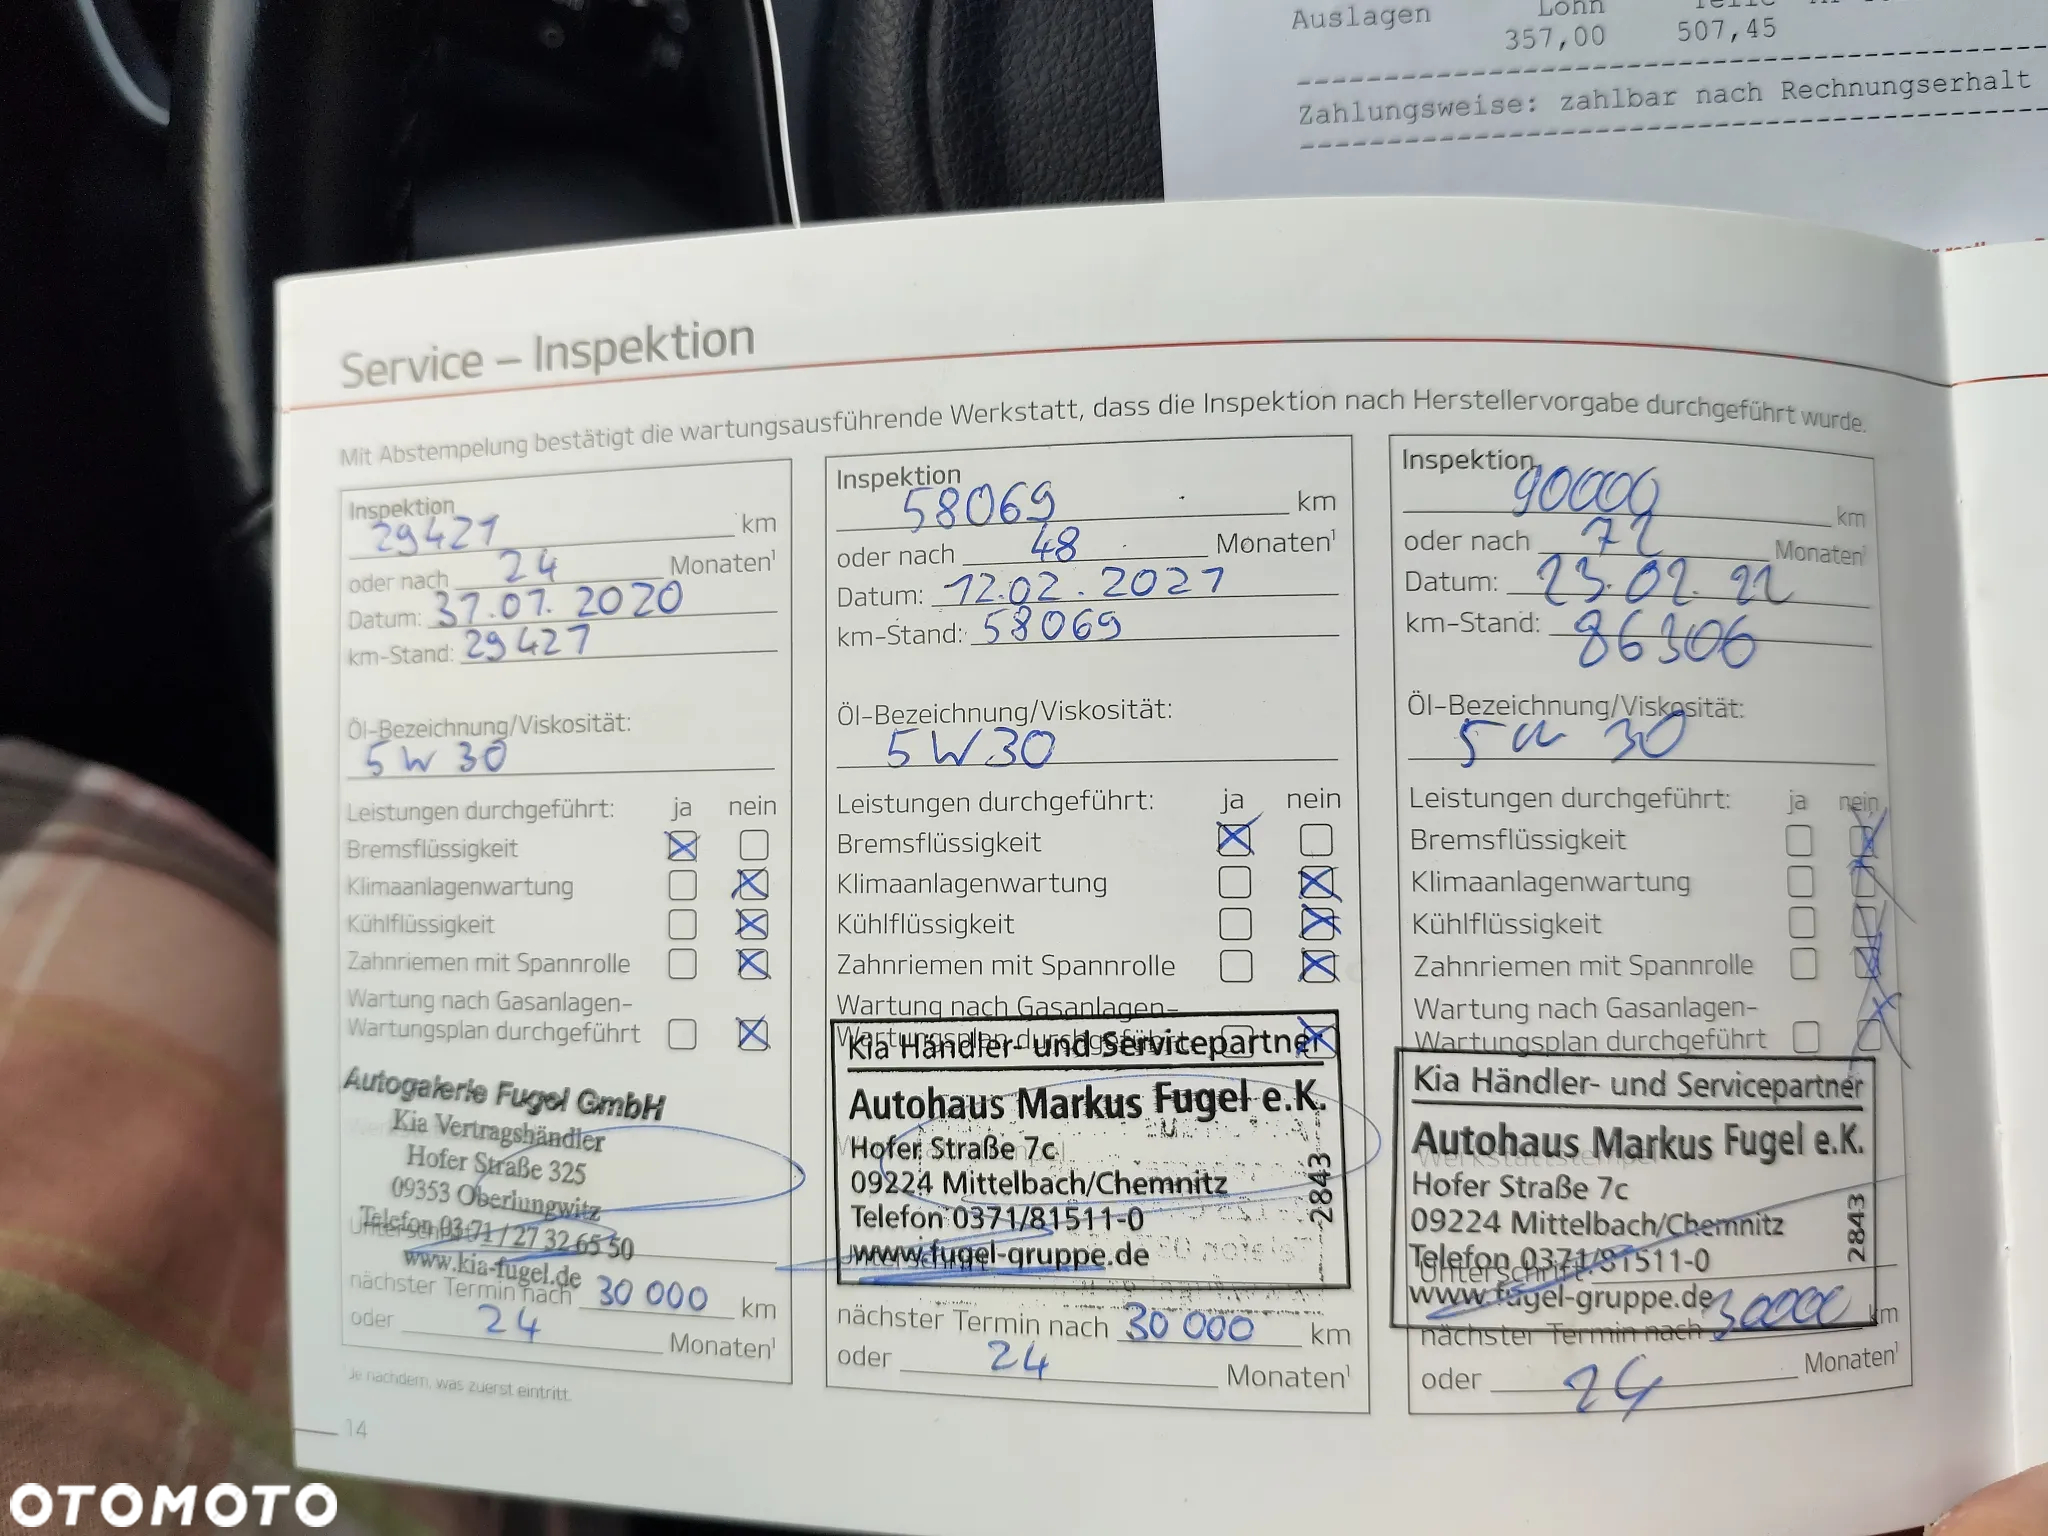 Auslagen Lohn
357,00 507,45
Zahlungsweise: zahlbar nach Rechnungserhalt
Service – Inspektion
Mit Abstempelung bestätigt die wartungsausführende Werkstatt, dass die Inspektion nach Herstellervorgabe durchgeführt wurde.
Inspektion
29421 km
oder nach 24 Monaten¹
Datum: 31.01.2020
km-Stand: 29421
Öl-Bezeichnung/Viskosität:
5W30
Leistungen durchgeführt: ja nein
Bremsflüssigkeit
Klimaanlagenwartung
Kühlflüssigkeit
Zahnriemen mit Spannrolle
Wartung nach Gasanlagen-
Wartungsplan durchgeführt
Autogalerie Fugel GmbH
Kia Vertragshändler
Hofer Straße 325
09353 Oberlungwitz
Telefon 03 71 / 27 32 65 50
www.kia-fugel.de
nächster Termin nach 30 000 km
oder 24 Monaten¹
¹ Je nachdem, was zuerst eintritt.
14
Inspektion
58069 km
oder nach 48 Monaten¹
Datum: 12.02.2021
km-Stand: 58069
Öl-Bezeichnung/Viskosität:
5W30
Leistungen durchgeführt: ja nein
Bremsflüssigkeit
Klimaanlagenwartung
Kühlflüssigkeit
Zahnriemen mit Spannrolle
Wartung nach Gasanlagen-
Wartungsplan durchgeführt
Kia Händler- und Servicepartner
Autohaus Markus Fugel e.K.
Hofer Straße 7c
09224 Mittelbach/Chemnitz
Telefon 0371/81511-0
www.fugel-gruppe.de
2843
nächster Termin nach 30 000 km
oder 24 Monaten¹
Inspektion
90000 km
oder nach 72 Monaten¹
Datum: 23.02.22
km-Stand: 86306
Öl-Bezeichnung/Viskosität:
5W30
Leistungen durchgeführt: ja nein
Bremsflüssigkeit
Klimaanlagenwartung
Kühlflüssigkeit
Zahnriemen mit Spannrolle
Wartung nach Gasanlagen-
Wartungsplan durchgeführt
Kia Händler- und Servicepartner
Autohaus Markus Fugel e.K.
Werkstattstempel
Hofer Straße 7c
09224 Mittelbach/Chemnitz
Telefon 0371/81511-0
Unterschrift
www.fugel-gruppe.de
2843
nächster Termin nach 30000 km
oder 24 Monaten¹
OTOMOTO